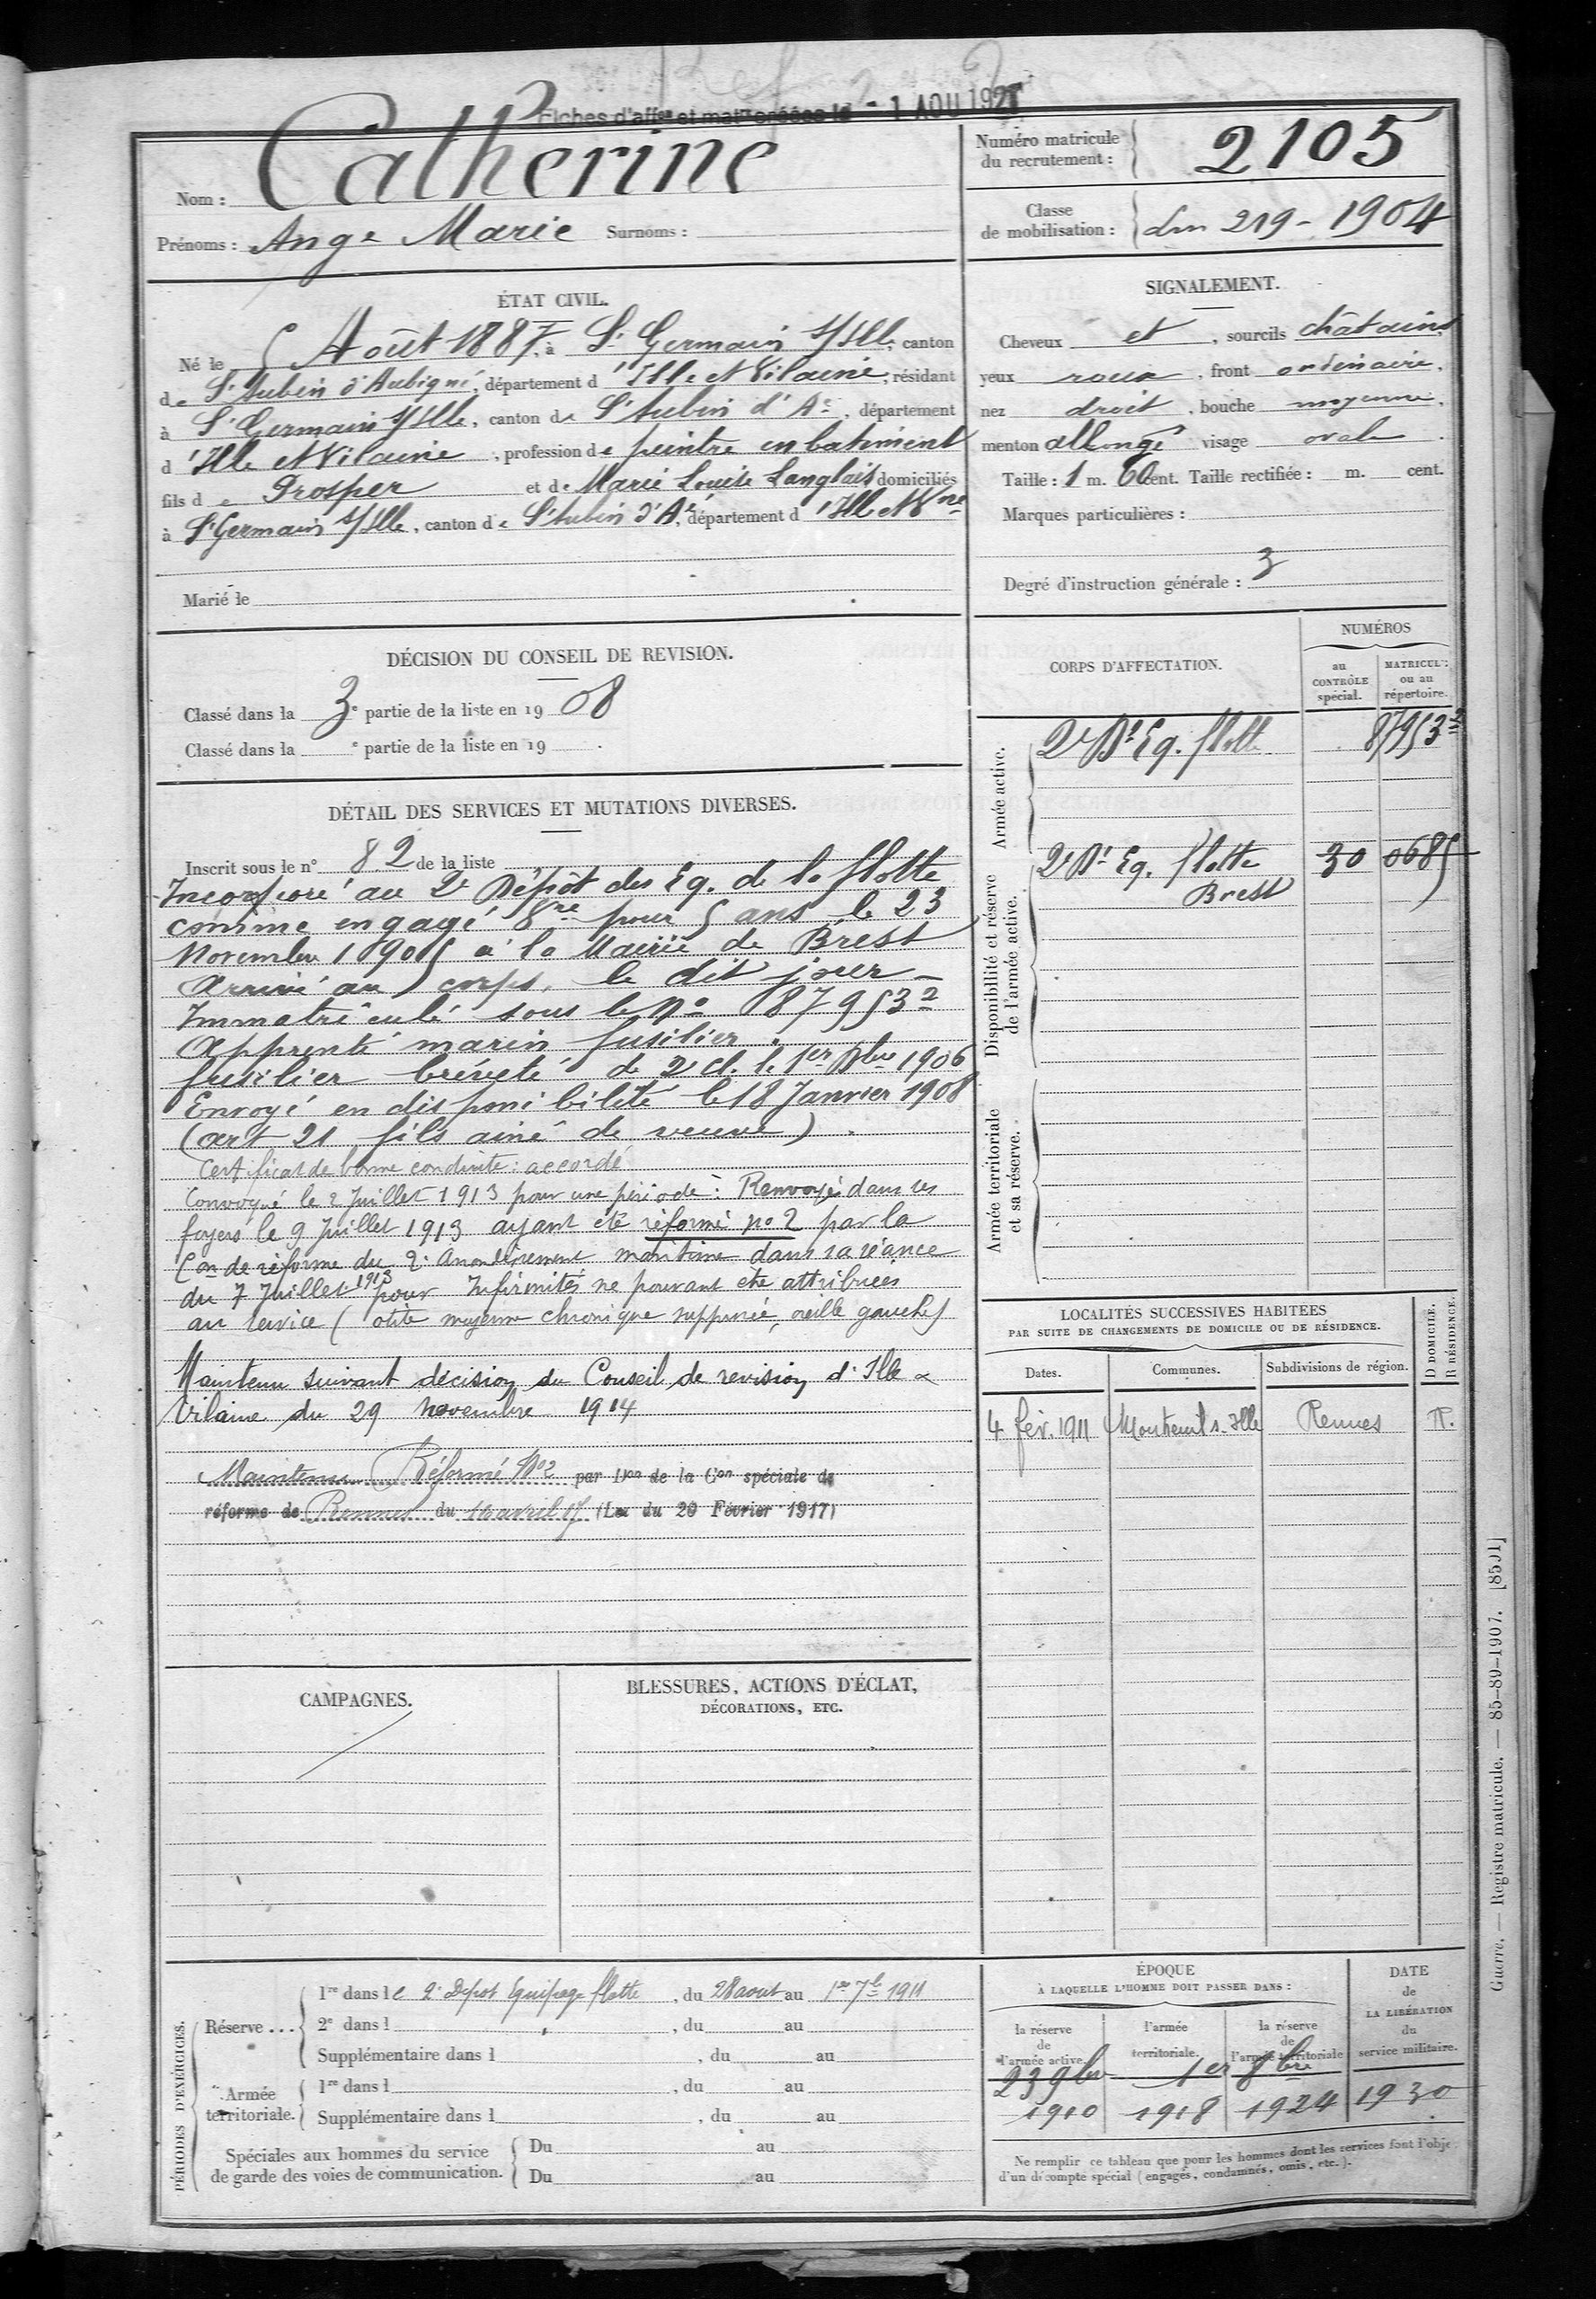 Fiches d'aff<sup>on</sup> et mat<sup>le</sup> créées le - 1 AOU 192
Catherine
Nom :
Prénoms : Ange Marie Surnoms :
Numéro matricule du recrutement : 2105
Classe de mobilisation : 219 - 1904
ÉTAT CIVIL.
Né le 5 Août 1887, à St Germain s/Ille, canton
de St Aubin d'Aubigné, département d'Ille et Vilaine, résidant
à St Germain s/Ille, canton de St Aubin d'Aé, département
d'Ille et Vilaine, profession de peintre en batiment
fils de Prosper et de Marie Louise Langlais domiciliés
à St Germain s/Ille, canton de St Aubin d'Aé, département d'Ille et Vne
Marié le
SIGNALEMENT.
Cheveux et, sourcils châtains
yeux roux, front ordinaire,
nez droit, bouche moyenne,
menton allongé visage ovale.
Taille : 1 m. 60 cent. Taille rectifiée : m. cent.
Marques particulières :
Degré d'instruction générale : 3
DÉCISION DU CONSEIL DE REVISION.
Classé dans la 3e partie de la liste en 1908
Classé dans la e partie de la liste en 19 .
DÉTAIL DES SERVICES ET MUTATIONS DIVERSES.
Inscrit sous le n° 82 de la liste
Incorporé au 2e Dépôt des Eq. de la flotte
comme engagé vre pour 5 ans le 23
Novembre 1905 à la Mairie de Brest
Arrivé au corps, le dit jour -
Immatriculé sous le No 87953 2
Apprenti marin fusilier.
fusilier breveté de 2 cl. le 1er Xbre 1906
Envoyé en disponibilité le 18 Janvier 1908
(art 21 fils ainé de veuve).
Certificat de bonne conduite : accordé
Convoqué le 2 Juillet 1913 pour une période : Renvoyé dans ses
foyers le 9 Juillet 1913 ayant été réformé no 2 par la
Con de réforme du 2e Arrondissement maritime dans sa séance
du 7 Juillet 1913 pour Infirmités ne pouvant être attribuées
au service (otite moyenne chronique suppurée, oreille gauche)
Maintenu suivant décision du Conseil de revision d'Ille &
Vilaine du 29 novembre 1914
Maintenu Réformé No2 par Don de la Con spéciale de
réforme de Rennes du 16 avril 17 (Loi du 20 Février 1917)
CORPS D'AFFECTATION.
NUMÉROS
au CONTRÔLE spécial.
MATRICULE ou au répertoire.
Armée active.
2e Dt Eq. flotte 87953 2
Disponibilité et réserve de l'armée active.
2e Dt Eq. flotte 30 0685
Brest
Armée territoriale et sa réserve.
LOCALITÉS SUCCESSIVES HABITEES
PAR SUITE DE CHANGEMENTS DE DOMICILE OU DE RÉSIDENCE.
Dates. Communes. Subdivisions de région. D DOMICILE. R RÉSIDENCE.
4 fév. 1911 Montreuil s. Ille Rennes R.
CAMPAGNES.
BLESSURES, ACTIONS D'ÉCLAT,
DÉCORATIONS, ETC.
PÉRIODES D'EXERCICES.
Réserve ...
1re dans le 2e Dépot Equipage flotte, du 28 aout au 1er 7b 1911
2e dans l , du au
Supplémentaire dans l , du au
Armée territoriale.
1re dans l , du au
Supplémentaire dans l , du au
Spéciales aux hommes du service
de garde des voies de communication.
Du au
Du au
ÉPOQUE
À LAQUELLE L'HOMME DOIT PASSER DANS :
la réserve de l'armée active.
l'armée territoriale.
la réserve de l'armée territoriale
DATE de LA LIBÉRATION du service militaire.
23 9bre 1er 8bre
1910 1918 1924 1930
Ne remplir ce tableau que pour les hommes dont les services font l'obje
d'un décompte spécial (engagés, condamnés, omis, etc.).
Guerre. — Registre matricule. — 85-89-1907. [8501]